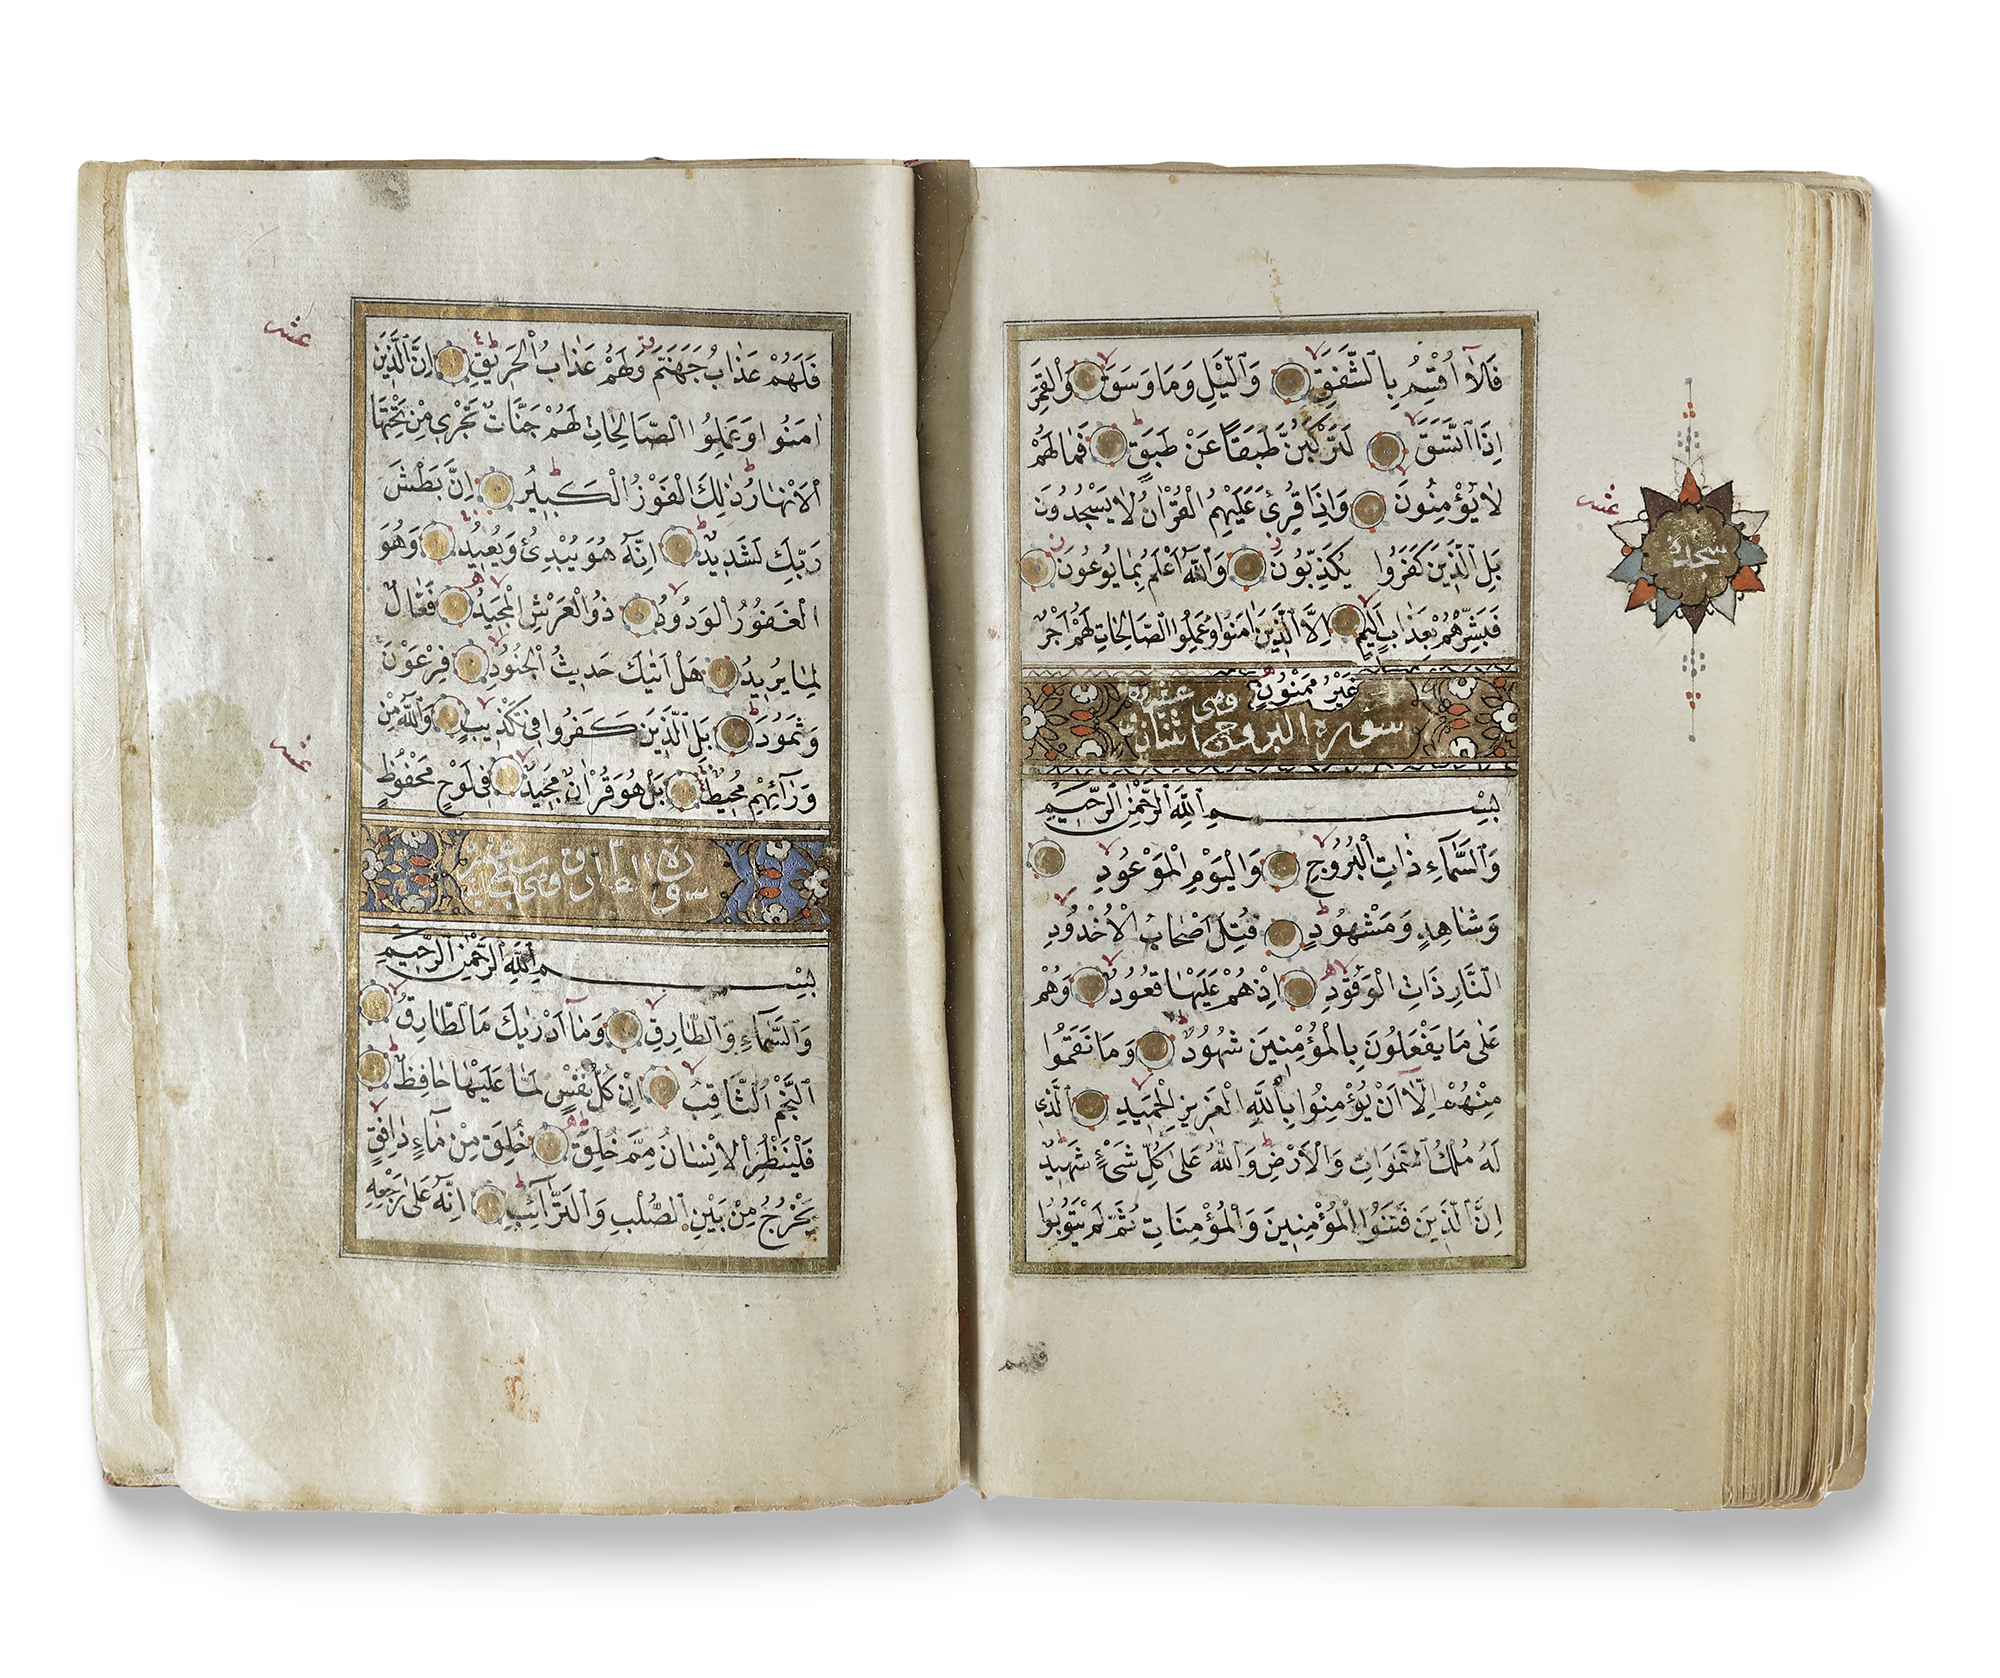 فَلَآ اُقْسِمُ بِالشَّفَقِ وَالَّيْلِ وَمَا وَسَقَ وَالْقَمَرِ
اِذَا اتَّسَقَ لَتَرْكَبُنَّ طَبَقًا عَنْ طَبَقٍ فَمَا لَهُمْ
لَا يُؤْمِنُونَ وَاِذَا قُرِئَ عَلَيْهِمُ الْقُرْاٰنُ لَا يَسْجُدُونَ
بَلِ الَّذِينَ كَفَرُوا يُكَذِّبُونَ وَاللّٰهُ اَعْلَمُ بِمَا يُوعُونَ
فَبَشِّرْهُمْ بِعَذَابٍ اَلِيمٍ اِلَّا الَّذِينَ اٰمَنُوا وَعَمِلُوا الصَّالِحَاتِ لَهُمْ اَجْرٌ
غَيْرُ مَمْنُونٍ
سورة البروج اثنتان وهى عشرون
بِسْمِ اللّٰهِ الرَّحْمٰنِ الرَّحِيمِ
وَالسَّمَآءِ ذَاتِ الْبُرُوجِ وَالْيَوْمِ الْمَوْعُودِ
وَشَاهِدٍ وَمَشْهُودٍ قُتِلَ اَصْحَابُ الْاُخْدُودِ
النَّارِ ذَاتِ الْوَقُودِ اِذْ هُمْ عَلَيْهَا قُعُودٌ وَهُمْ
عَلٰى مَا يَفْعَلُونَ بِالْمُؤْمِنِينَ شُهُودٌ وَمَا نَقَمُوا
مِنْهُمْ اِلَّآ اَنْ يُؤْمِنُوا بِاللّٰهِ الْعَزِيزِ الْحَمِيدِ اَلَّذِى
لَهُ مُلْكُ السَّمٰوَاتِ وَالْاَرْضِ وَاللّٰهُ عَلٰى كُلِّ شَىْءٍ شَهِيدٌ
اِنَّ الَّذِينَ فَتَنُوا الْمُؤْمِنِينَ وَالْمُؤْمِنَاتِ ثُمَّ لَمْ يَتُوبُوا
فلهم
عشر
سجده
فَلَهُمْ عَذَابُ جَهَنَّمَ وَلَهُمْ عَذَابُ الْحَرِيقِ اِنَّ الَّذِينَ
اٰمَنُوا وَعَمِلُوا الصَّالِحَاتِ لَهُمْ جَنَّاتٌ تَجْرِى مِنْ تَحْتِهَا
الْاَنْهَارُ ذٰلِكَ الْفَوْزُ الْكَبِيرُ اِنَّ بَطْشَ
رَبِّكَ لَشَدِيدٌ اِنَّهُ هُوَ يُبْدِئُ وَيُعِيدُ وَهُوَ
الْغَفُورُ الْوَدُودُ ذُو الْعَرْشِ الْمَجِيدُ فَعَّالٌ
لِمَا يُرِيدُ هَلْ اَتٰيكَ حَدِيثُ الْجُنُودِ فِرْعَوْنَ
وَثَمُودَ بَلِ الَّذِينَ كَفَرُوا فِى تَكْذِيبٍ وَاللّٰهُ مِنْ
وَرَآئِهِمْ مُحِيطٌ بَلْ هُوَ قُرْاٰنٌ مَجِيدٌ فِى لَوْحٍ مَحْفُوظٍ
سورة الطارق وهى
بِسْمِ اللّٰهِ الرَّحْمٰنِ الرَّحِيمِ
وَالسَّمَآءِ وَالطَّارِقِ وَمَآ اَدْرٰيكَ مَا الطَّارِقُ
النَّجْمُ الثَّاقِبُ اِنْ كُلُّ نَفْسٍ لَمَّا عَلَيْهَا حَافِظٌ
فَلْيَنْظُرِ الْاِنْسَانُ مِمَّ خُلِقَ خُلِقَ مِنْ مَآءٍ دَافِقٍ
يَخْرُجُ مِنْ بَيْنِ الصُّلْبِ وَالتَّرَآئِبِ اِنَّهُ عَلٰى رَجْعِهِ
عشر
عشر